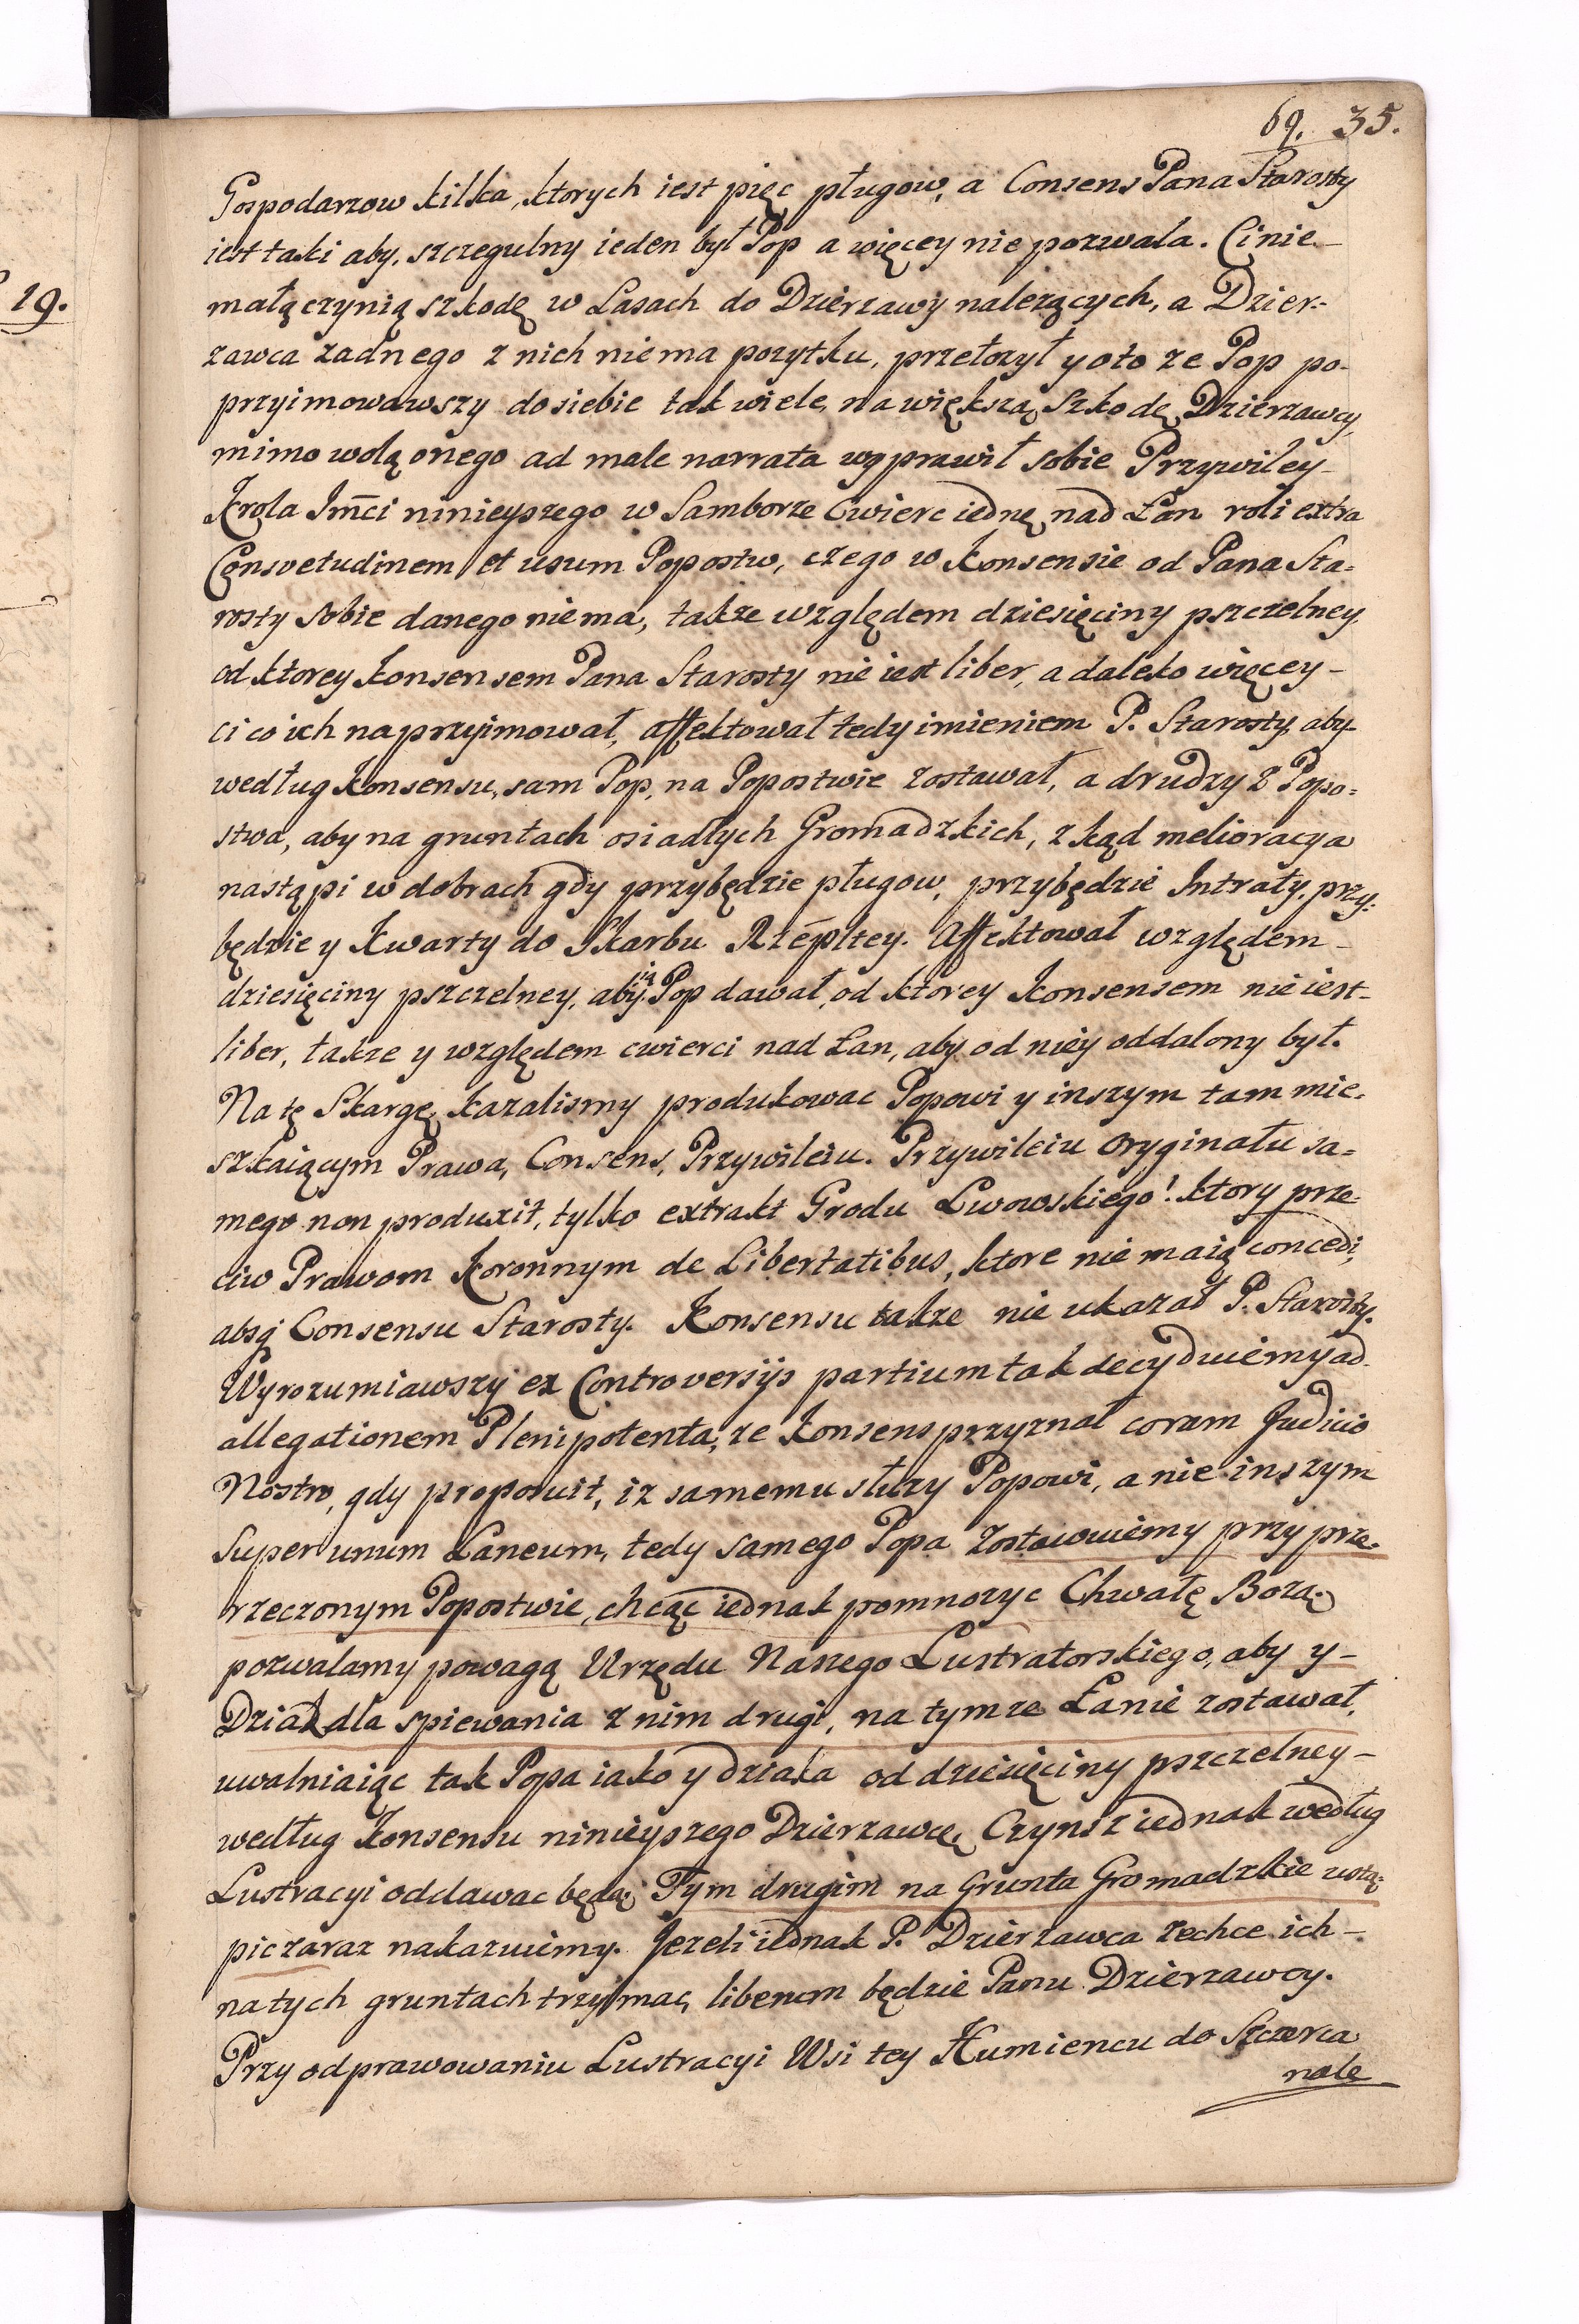 69. 35.
19.
Gospodarzow kilka, ktorych iest pięc pługow, a Consens Pana Starosty
iest taki aby, szczegulny ieden był Pop a więcey nie pozwala. Ci nie
małą czynią szkodę w Lasach do Dzierzawy nalezących, a Dzier-
zawca zadnego z nich nie ma pozytku, przełozył y oto ze Pop po-
przyimowawszy do siebie tak wiele, na większą Szkodę Dzierzawcy,
mimo wolą onego ad male narrata wyprawił sobie Przywiley
Krola Jm̃ci ninieyszego w Samborze Cwierc iednę nad Łan roli extra
Consvetudinem et usum Popostw, czego w Konsensie od Pana Sta=
rosty sobie danego nie ma, takze względem dziesięciny pszczelney,
od ktorey Konsensem Pana Starosty nie iest liber, a daleko więcey –
ci co ich naprzyimował, affektował tedy imieniem P. Starosty, aby
według Konsensu, sam Pop, na Popostwie zostawał, a drudzy z Popo=
stwa, aby na gruntach osiadłych Gromadzkich, zkąd melioracya
nastąpi w dobrach gdy przybędzie pługow, przybędzie Intraty, przy-
będzie y Kwarty do Skarbu Rzepltey. Affektował względem –
dziesięciny pszczelney, aby ią Pop dawał, od ktorey Konsensem nie iest –
liber, takze y względem cwierci nad Łan, aby od niey oddalony był.
Na tę Skargę, kazalismy produkowac Popowi y inszym tam mie-
szkaiącym Prawa, Consens, Przywileiu. Przywileiu oryginału sa=
mego non produxit, tylko extrakt Grodu Lwowskiego! ktory prze-
ciw Prawom Koronnym de Libertatibus, ktore nie maią concedi,
absq Consensu Starosty. Konsensu takze nie ukazał P. Starosty.
Wyrozumiawszy ex Controversijs partium tak decyduiemy ad
allegationem Plenipotenta, ze Konsens przyznał coram Judicio
Nostro, gdy proposuit, iz samemu słuzy Popowi, a nie inszym
super unum Laneum, tedy samego Popa zostawuiemy przy prze-
rzeczonym Popostwie, chcąc iednak pomnozyc Chwałę Bozą
pozwalamy powagą Urzędu Naszego Lustratorskiego, aby y –
Dziak dla spiewania z nim drugi, na tymze Łanie zostawał,
uwalniaiąc tak Popa iako y dziaka od dziesięciny pszczelney –
według Konsensu ninieyszego Dzierzawcę, Czynsz iednak według
Lustracyi oddawac będą. Tym drugim na Grunta Gromadzkie ustą-
pic zaraz nakazuiemy. Jezeli iednak P. Dzierzawca zechce ich –
na tych gruntach trzymac, liberum będzie Panu Dzierzawcy.
Przy odprawowaniu Lustracyi Wsi tey Humiencu do Szczerca
nale